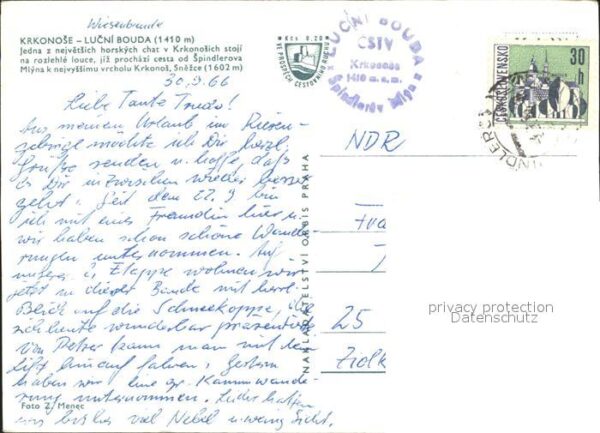 Wiesenbaude
KRKONOŠE – LUČNÍ BOUDA (1410 m)
Jedna z největších horských chat v Krkonoších stojí
na rozlehlé louce, jíž prochází cesta od Špindlerova
Mlýna k nejvyššímu vrcholu Krkonoš, Sněžce (1602 m)
Kčs 0.20
VE PROSPĚCH CESTOVNÍHO RUCHU
LUČNÍ BOUDA
ČSTV
Krkonoše
1410 m n.m.
Špindlerův Mlýn
30 h
ČESKOSLOVENSKO
30.9.66
Liebe Tante Trude!
Aus meinem Urlaub im Riesen-
gebirge möchte ich Dir herzl.
Grüße senden u. hoffe, daß
es Dir inzwischen wieder besser
geht. Seit dem 22.9 bin
ich mit einer Freundin hier u.
wir haben schon schöne Wande-
rungen unternommen. Auf
unserer Etappe wohnen wir
jetzt in dieser Baude mit herrl.
Blick auf die Schneekoppe, die
sich heute wunderbar präsentiert.
Von Petzer kann man mit dem
Lift hinauf fahren. Gestern
haben wir eine gr. Kammwande-
rung unternommen. Leider hatten
wir bisher viel Nebel u. wenig Sicht.
NAKLADATELSTVÍ ORBIS PRAHA
NDR
Fra
25
Foto Z. Menec
privacy protection
Datenschutz